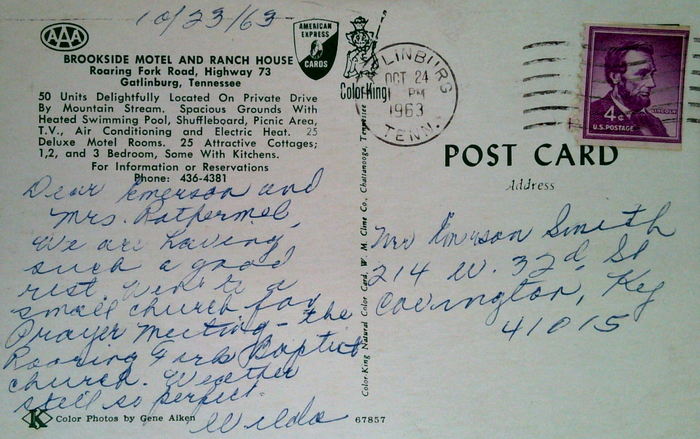 10/23/63
AAA
BROOKSIDE MOTEL AND RANCH HOUSE
Roaring Fork Road, Highway 73
Gatlinburg, Tennessee
50 Units Delightfully Located On Private Drive
By Mountain Stream. Spacious Grounds With
Heated Swimming Pool, Shuffleboard, Picnic Area,
T.V., Air Conditioning and Electric Heat. 25
Deluxe Motel Rooms. 25 Attractive Cottages;
1,2, and 3 Bedroom, Some With Kitchens.
For Information or Reservations
Phone: 436-4381
Dear Emerson and
Mrs. Rothermel
We are having
such a good
rest. Went to a
small church for
Prayer Meeting - the
Roaring Fork Baptist
church. Weather
still so perfect
Wilda
K Color Photos by Gene Aiken
67857
AMERICAN
EXPRESS
CARDS
Color-King
Color-King Natural Color Card, W. M. Cline Co., Chattanooga, Tennessee
LINBURG
OCT 24
PM
1963
TENN.
4¢
LINCOLN
U.S. POSTAGE
POST CARD
Address
Mr Emerson Smith
214 W. 32d St
Covington, Ky
41015